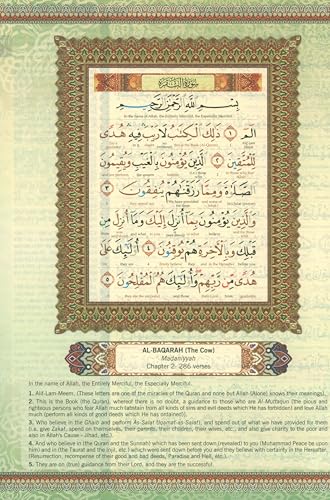 سورة البقرة
بسم الله الرحمن الرحيم
In the name of Allah, the Entirely Merciful, the Especially Merciful.
الم ١ ذلك الكتب لا ريب فيه هدى
للمتقين ٢ الذين يؤمنون بالغيب ويقيمون
الصلاة ومما رزقنهم ينفقون ٣
والذين يؤمنون بما أنزل إليك وما أنزل من
قبلك وبالآخرة هم يوقنون ٤ أولئك على
هدى من ربهم وأولئك هم المفلحون ٥
AL-BAQARAH (The Cow)
Madaniyyah
Chapter 2: 286 verses
In the name of Allah, the Entirely Merciful, the Especially Merciful.
1. Alif-Lam-Meem. (These letters are one of the miracles of the Quran and none but Allah (Alone) knows their meanings).
2. This is the Book (the Quran), whereof there is no doubt, a guidance to those who are Al-Muttaqun (the pious and
righteous persons who fear Allah much (abstain from all kinds of sins and evil deeds which He has forbidden) and love Allah
much (perform all kinds of good deeds which He has ordained)).
3. Who believe in the Ghaib and perform As-Salat (Iqamat-as-Salat), and spend out of what we have provided for them
(i.e. give Zakat, spend on themselves, their parents, their children, their wives, etc., and also give charity to the poor and
also in Allah's Cause - Jihad, etc.).
4. And who believe in (the Quran and the Sunnah) which has been sent down (revealed) to you (Muhammad Peace be upon
him) and in the Taurat and the Injil, etc.) which were sent down before you and they believe with certainty in the Hereafter.
(Resurrection, recompense of their good and bad deeds, Paradise and Hell, etc.).
5. They are on (true) guidance from their Lord, and they are the successful.